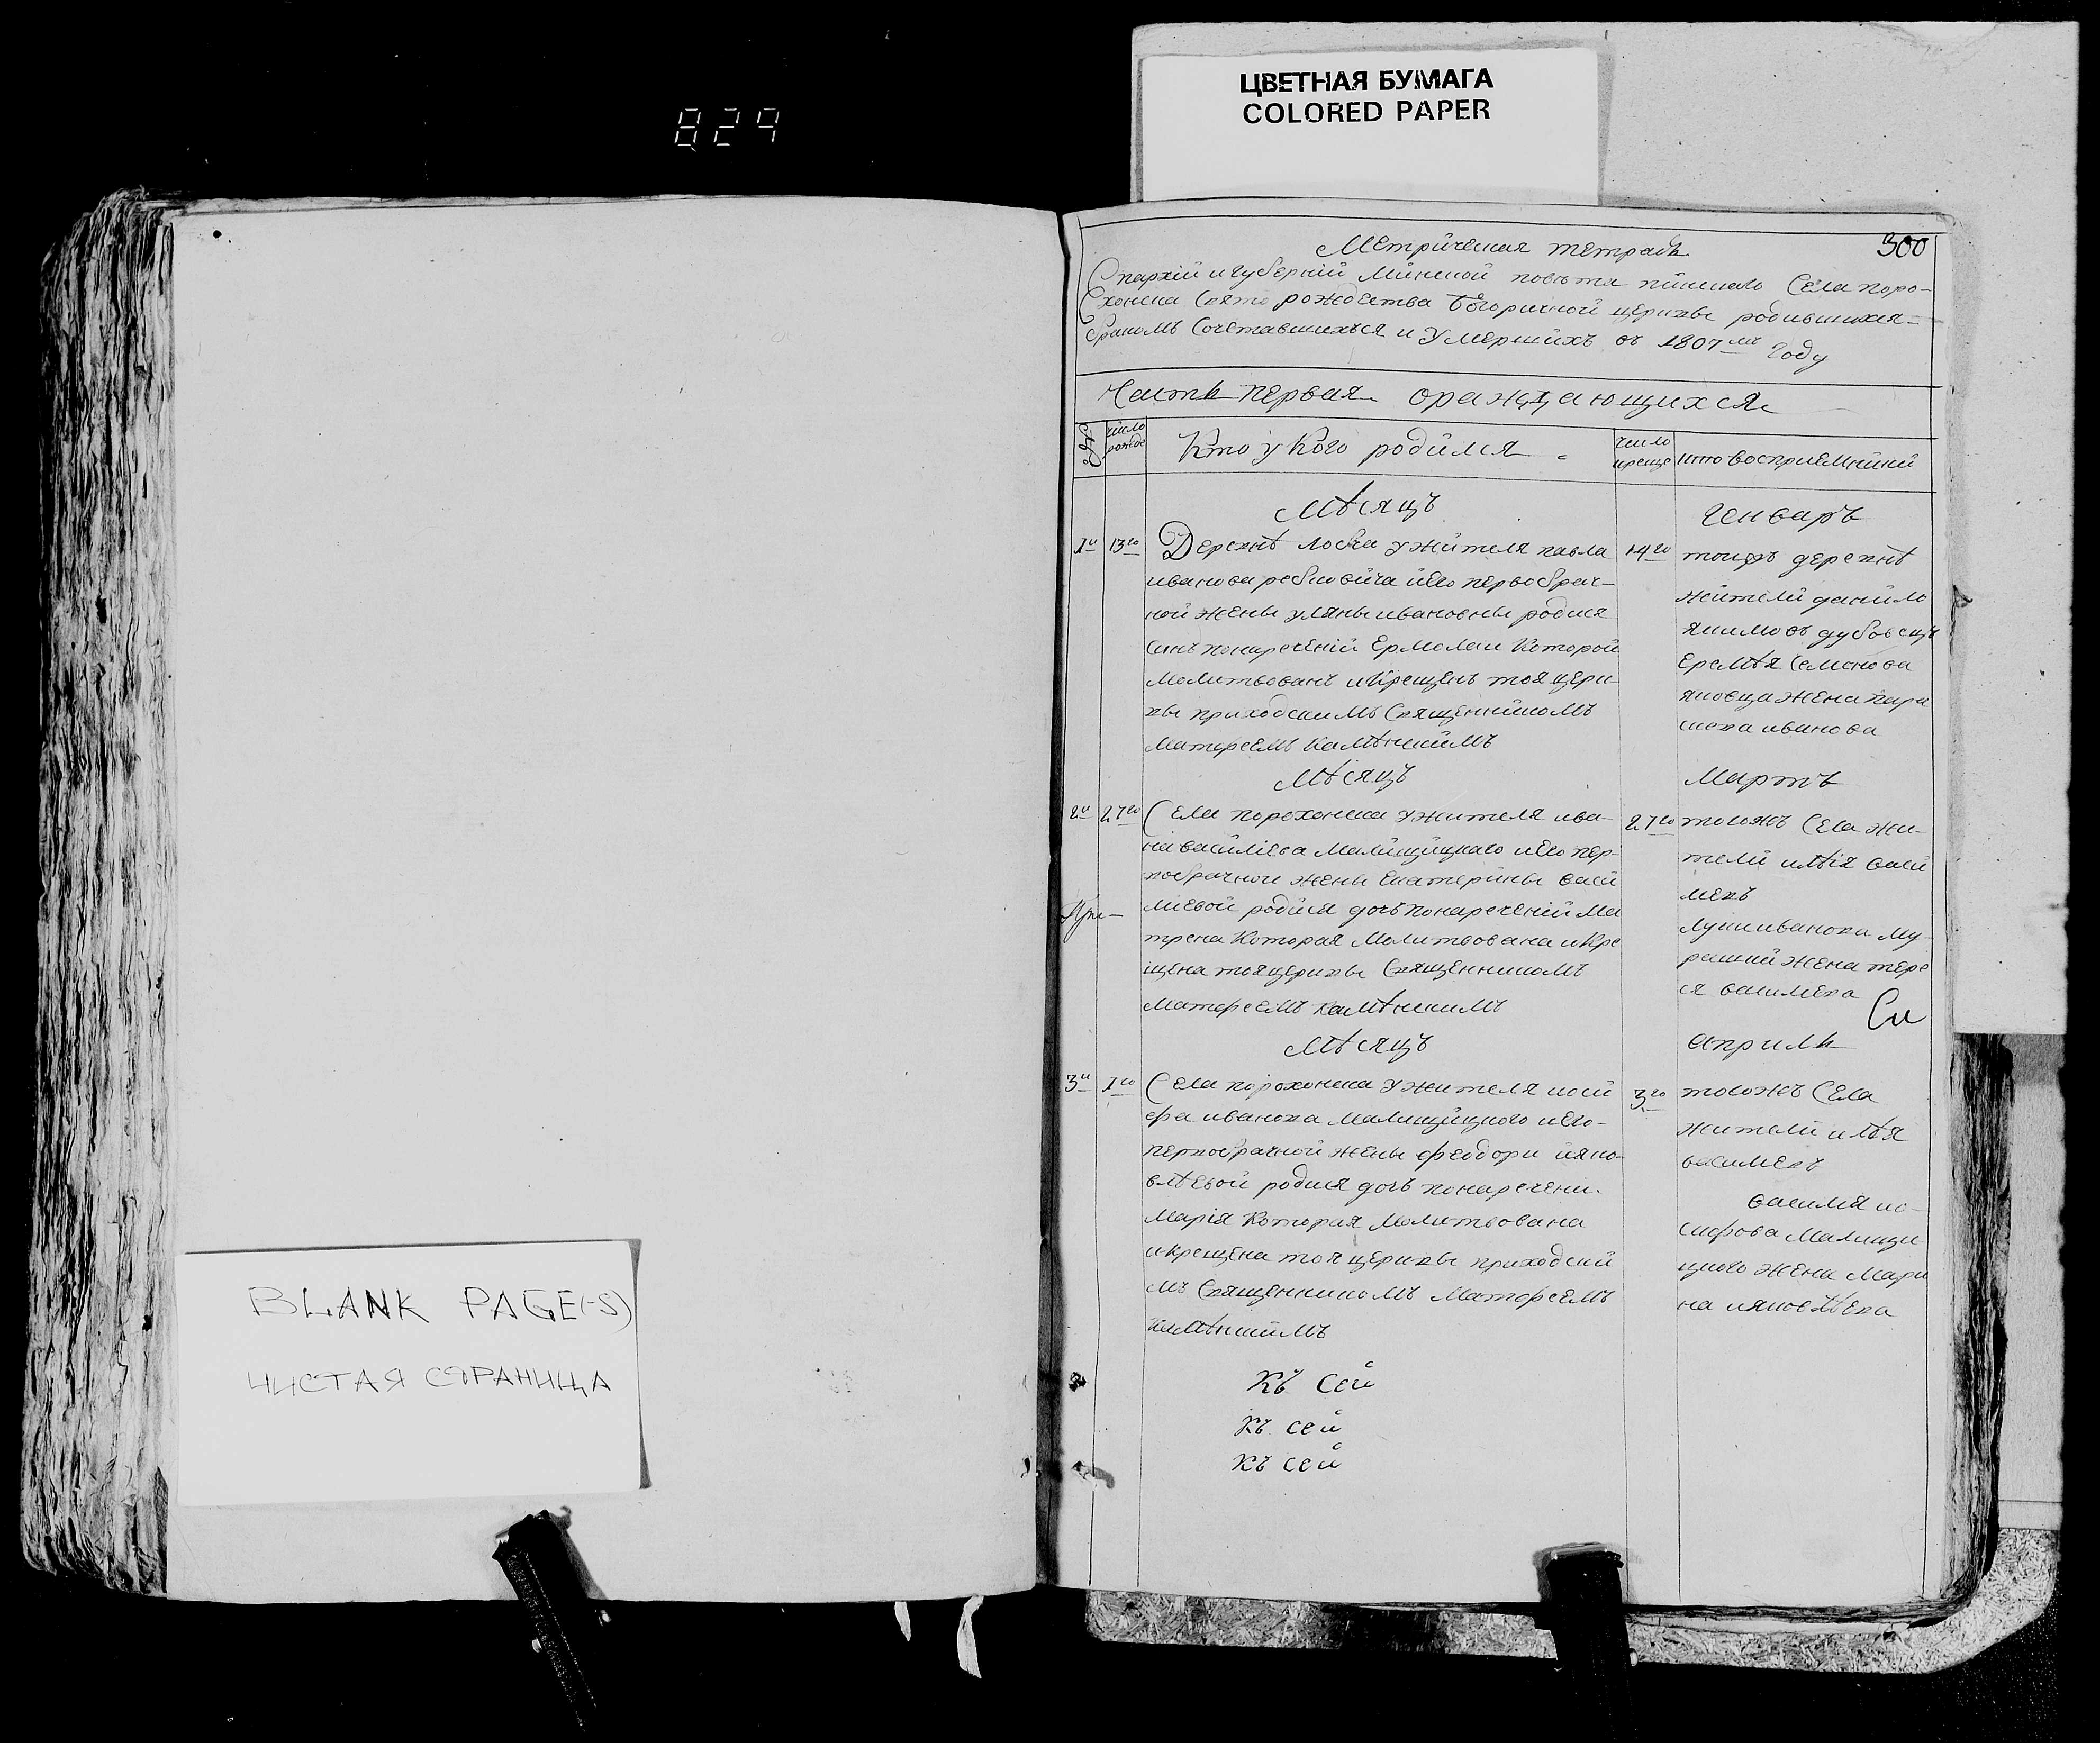 829
ЦВЕТНАЯ БУМАГА
COLORED PAPER
BLANK PAGE(-S)
ЧИСТАЯ СТРАНИЦА
300
Метрическая тетрадь
Епархій и губерній Минской повѣта пинскаго Села поро-
хонска Свято рождества Богоричной церкве родившихся
бракомъ Сочетавшихъся и Умершихъ въ 1807мъ Году
Часть первая ораждающихся
число рожде
Кто у Кого родился
число креще
кто восприемники
Мѣсяцъ
Генваръ
1и 13го Деревнѣ лосича У жителя павла
ивановаребковича иего первобрач-
ной жены уляны ивановны родися
синъ понареченій Ермолаи Которой
молитвованъ иКрещенъ тоя церк-
ве приходскимъ Священникомъ
матфеемъ Камѣнскимъ
14го тоижъ деревнѣ
жители данило
якимовъ дубовецъ
Еремѣя Семонова
яковца жена пара
скева иванова
Мѣсяцъ
Мартъ
2и 27го Села порохонска У жителя ива-
на василіева малишицкаго иего пер-
вобрачнои жены Екатерины васи
лиевой родися дочъ понареченій Ма
трена Которая Молитвована иКре
щена тоя церкве Священникомъ
матфеемъ камѣнскимъ
27го тогожъ Села жи-
тели илѣя васи
левъ
луки иванова му-
рашкй жена тере
ся василева
Мѣсяцъ
априль
3и 1го Села порохонска У жителя иоси
фа иванова малишицкого иего-
первобрачной жены феодори иако-
влѣвой родися дочъ понаречени
марія Которая молитвована
икрещена тоя церкве приходскй
мъ Священникомъ матфеемъ
камѣнскимъ
3го тогожъ Села
жители илѣя
василевъ
василия ио-
сифова малиши
цкого жена Мари
на ияковлѣва
Къ сей
Къ сей
Къ сей